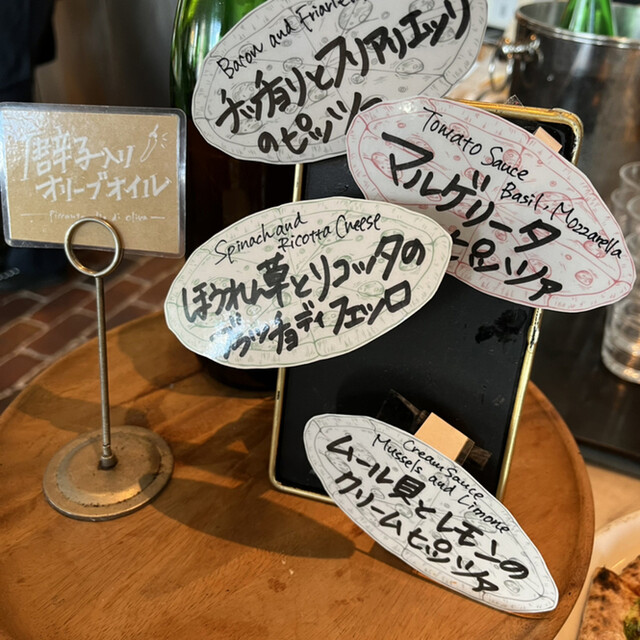 Bacon and
チッチョリとフリアリエッリ
のピッツァ
唐辛子入り
オリーブオイル
Tomato Sauce
Basil. Mozzarella
マルゲリータ
ピッツァ
Spinach and
Ricotta Cheese
ほうれん草とリコッタの
ディフェッロ
Cream Sauce
Mussels and Limone
ムール貝とレモンの
クリームピッツァ